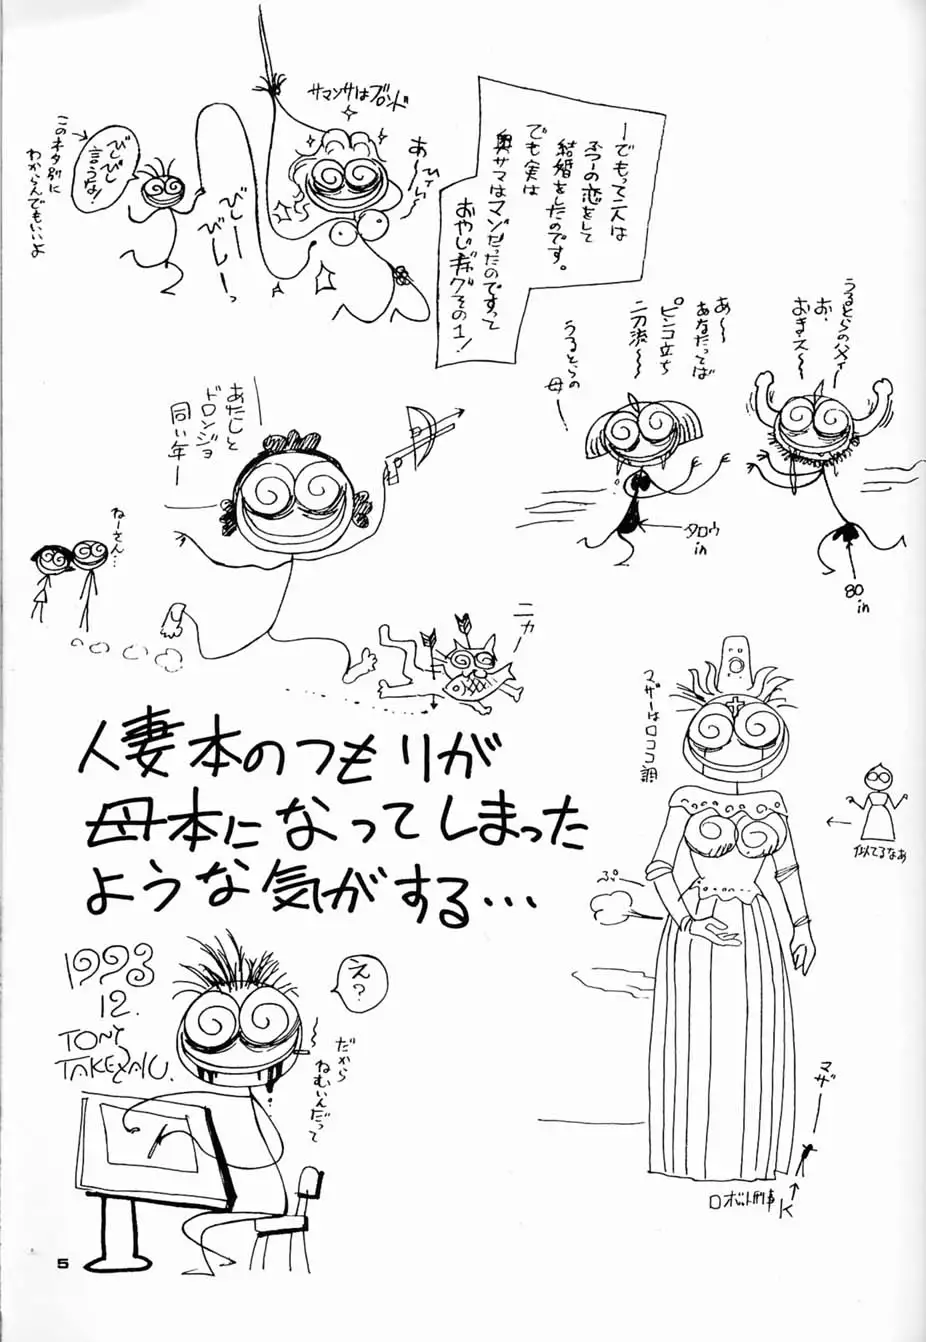 ーでもって二人は
ふつーの恋をして
結婚をしたのです。
でも実は
奥サマはマゾだったのですって
おやじギャグその1!
サマンサはブロンド
あ〜
ヒィ〜
びし〜
びし〜っ
びしびし
言うな!
このネタ別に
わからんでもいいよ
うるとらの父〜
お、
おきス〜
あ〜
あなたってば
ピンコ立ち
二刀流〜
うるとらの
母ー
タロウ
in
80
in
あたしと
ドロンジョ
同い年ー
ねーさん…
ニカ
マザーはロココ調
似てるなあ
ぷー
人妻本のつもりが
母本になってしまった
ような気がする…
1993
12.
TONY
TAKEZAKI.
え?
だから
ねむいんだって
マザー
ロボット刑事K
5